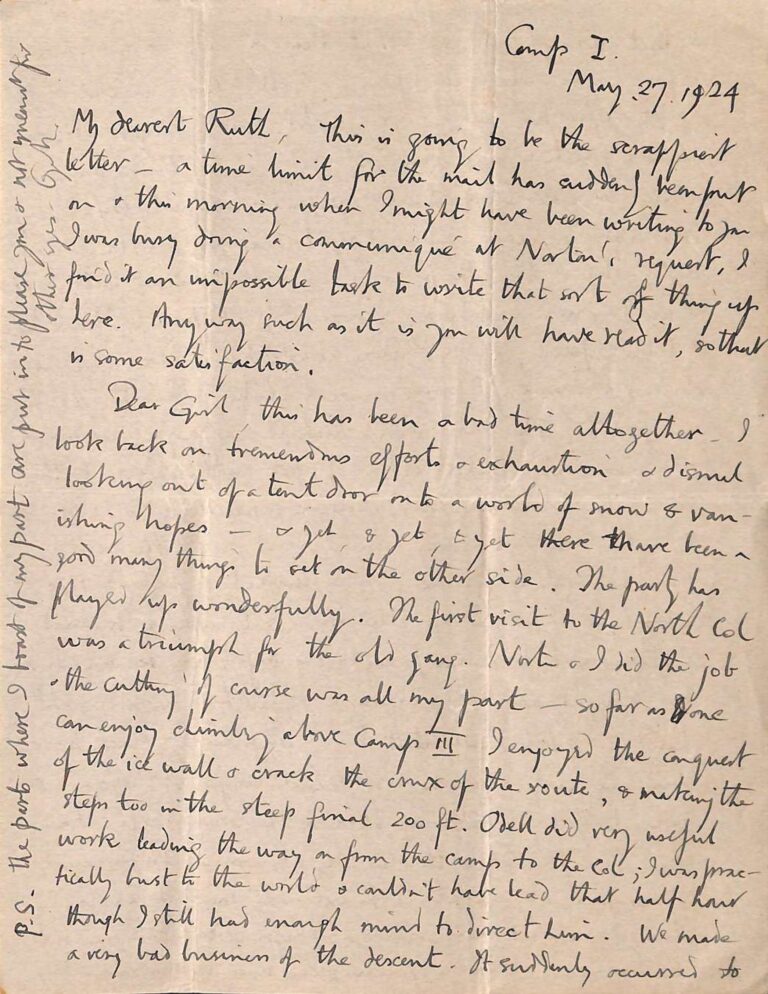 Camp I.
May. 27. 1924
My dearest Ruth, This is going to be the scrappiest
letter — a time limit for the mail has suddenly been put
on & this morning when I might have been writing to you
I was busy doing a communiqué at Norton's request, I
find it an impossible task to write that sort of thing up
here. Anyway such as it is you will have read it, so that
is some satisfaction.
Dear Girl, this has been a bad time altogether — I
look back on tremendous efforts & exhaustion & dismal
looking out of a tent door onto a world of snow & van-
ishing hopes — & yet, & yet, & yet there have been a
good many things to set on the other side. The party has
played up wonderfully. The first visit to the North Col
was a triumph for the old gang. Norton & I did the job
& the cutting of course was all my part — so far as one
can enjoy climbing above Camp III I enjoyed the conquest
of the ice wall & crack the crux of the route, & making the
steps too in the steep final 200 ft. Odell did very useful
work leading the way on from the camp to the Col; I was prac-
tically bust to the world & couldn't have lead that half hour
though I still had enough mind to direct him. We made
a very bad business of the descent. It suddenly occurred to
P.S. The parts where I boast of my part are put in to please you & not meant for
other eyes — G.M.